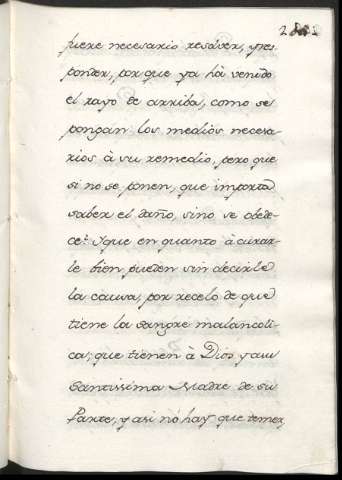 fuere necesario resòver, y res
ponder, por que ya hà venido
el rayo de arriba, como se
pongan los medios necesa-
rios à su remedio, pero que
si no se ponen, que importa
saber el daño, sino se obede-
ce? Y que en quanto à curar-
le bien pueden sin decirle
la causa, por recelo de que
tiene la sangre malancoli-
ca; que tienen à Dios y a su
Santissima Madre de su
parte, y asi no hay que temer